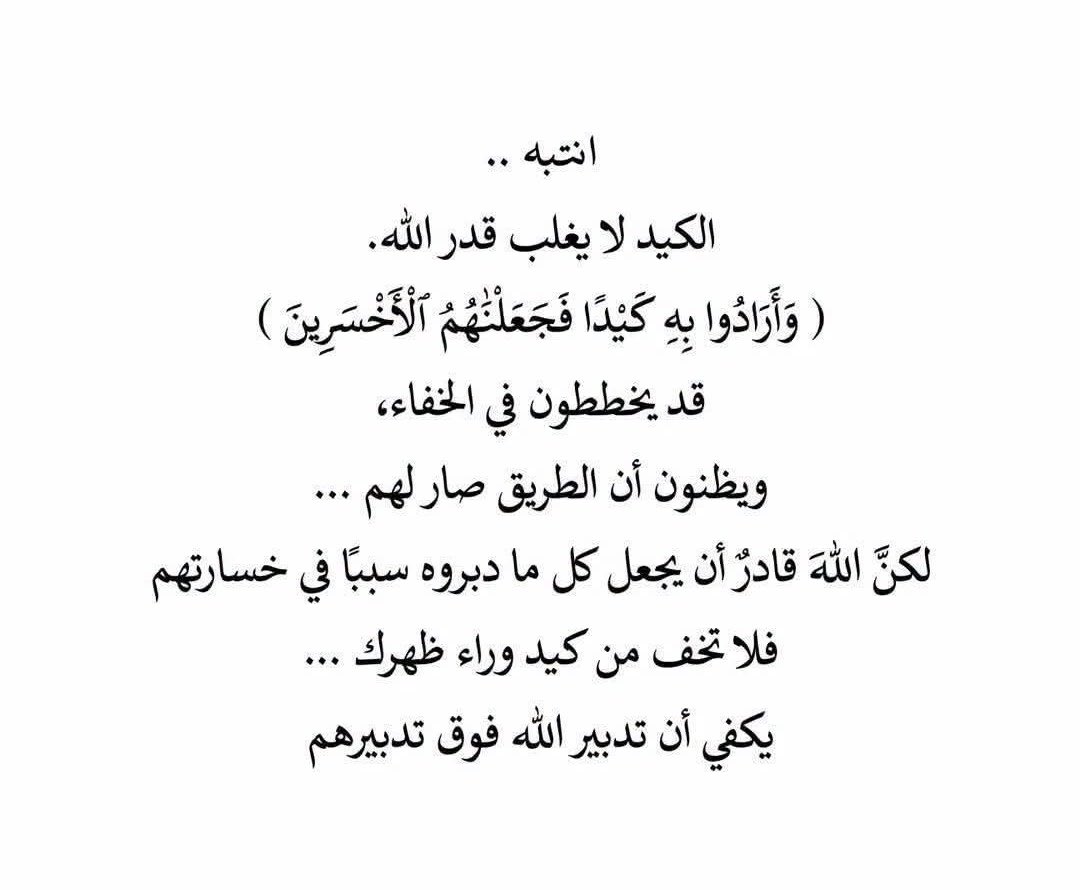 انتبه ..
الكيد لا يغلب قدر الله.
( وَأَرَادُوا بِهِ كَيْدًا فَجَعَلْنَٰهُمُ ٱلْأَخْسَرِينَ )
قد يخططون في الخفاء،
ويظنون أن الطريق صار لهم ...
لكنَّ اللهَ قادرٌ أن يجعل كل ما دبروه سببًا في خسارتهم
فلا تخف من كيد وراء ظهرك ...
يكفي أن تدبير الله فوق تدبيرهم